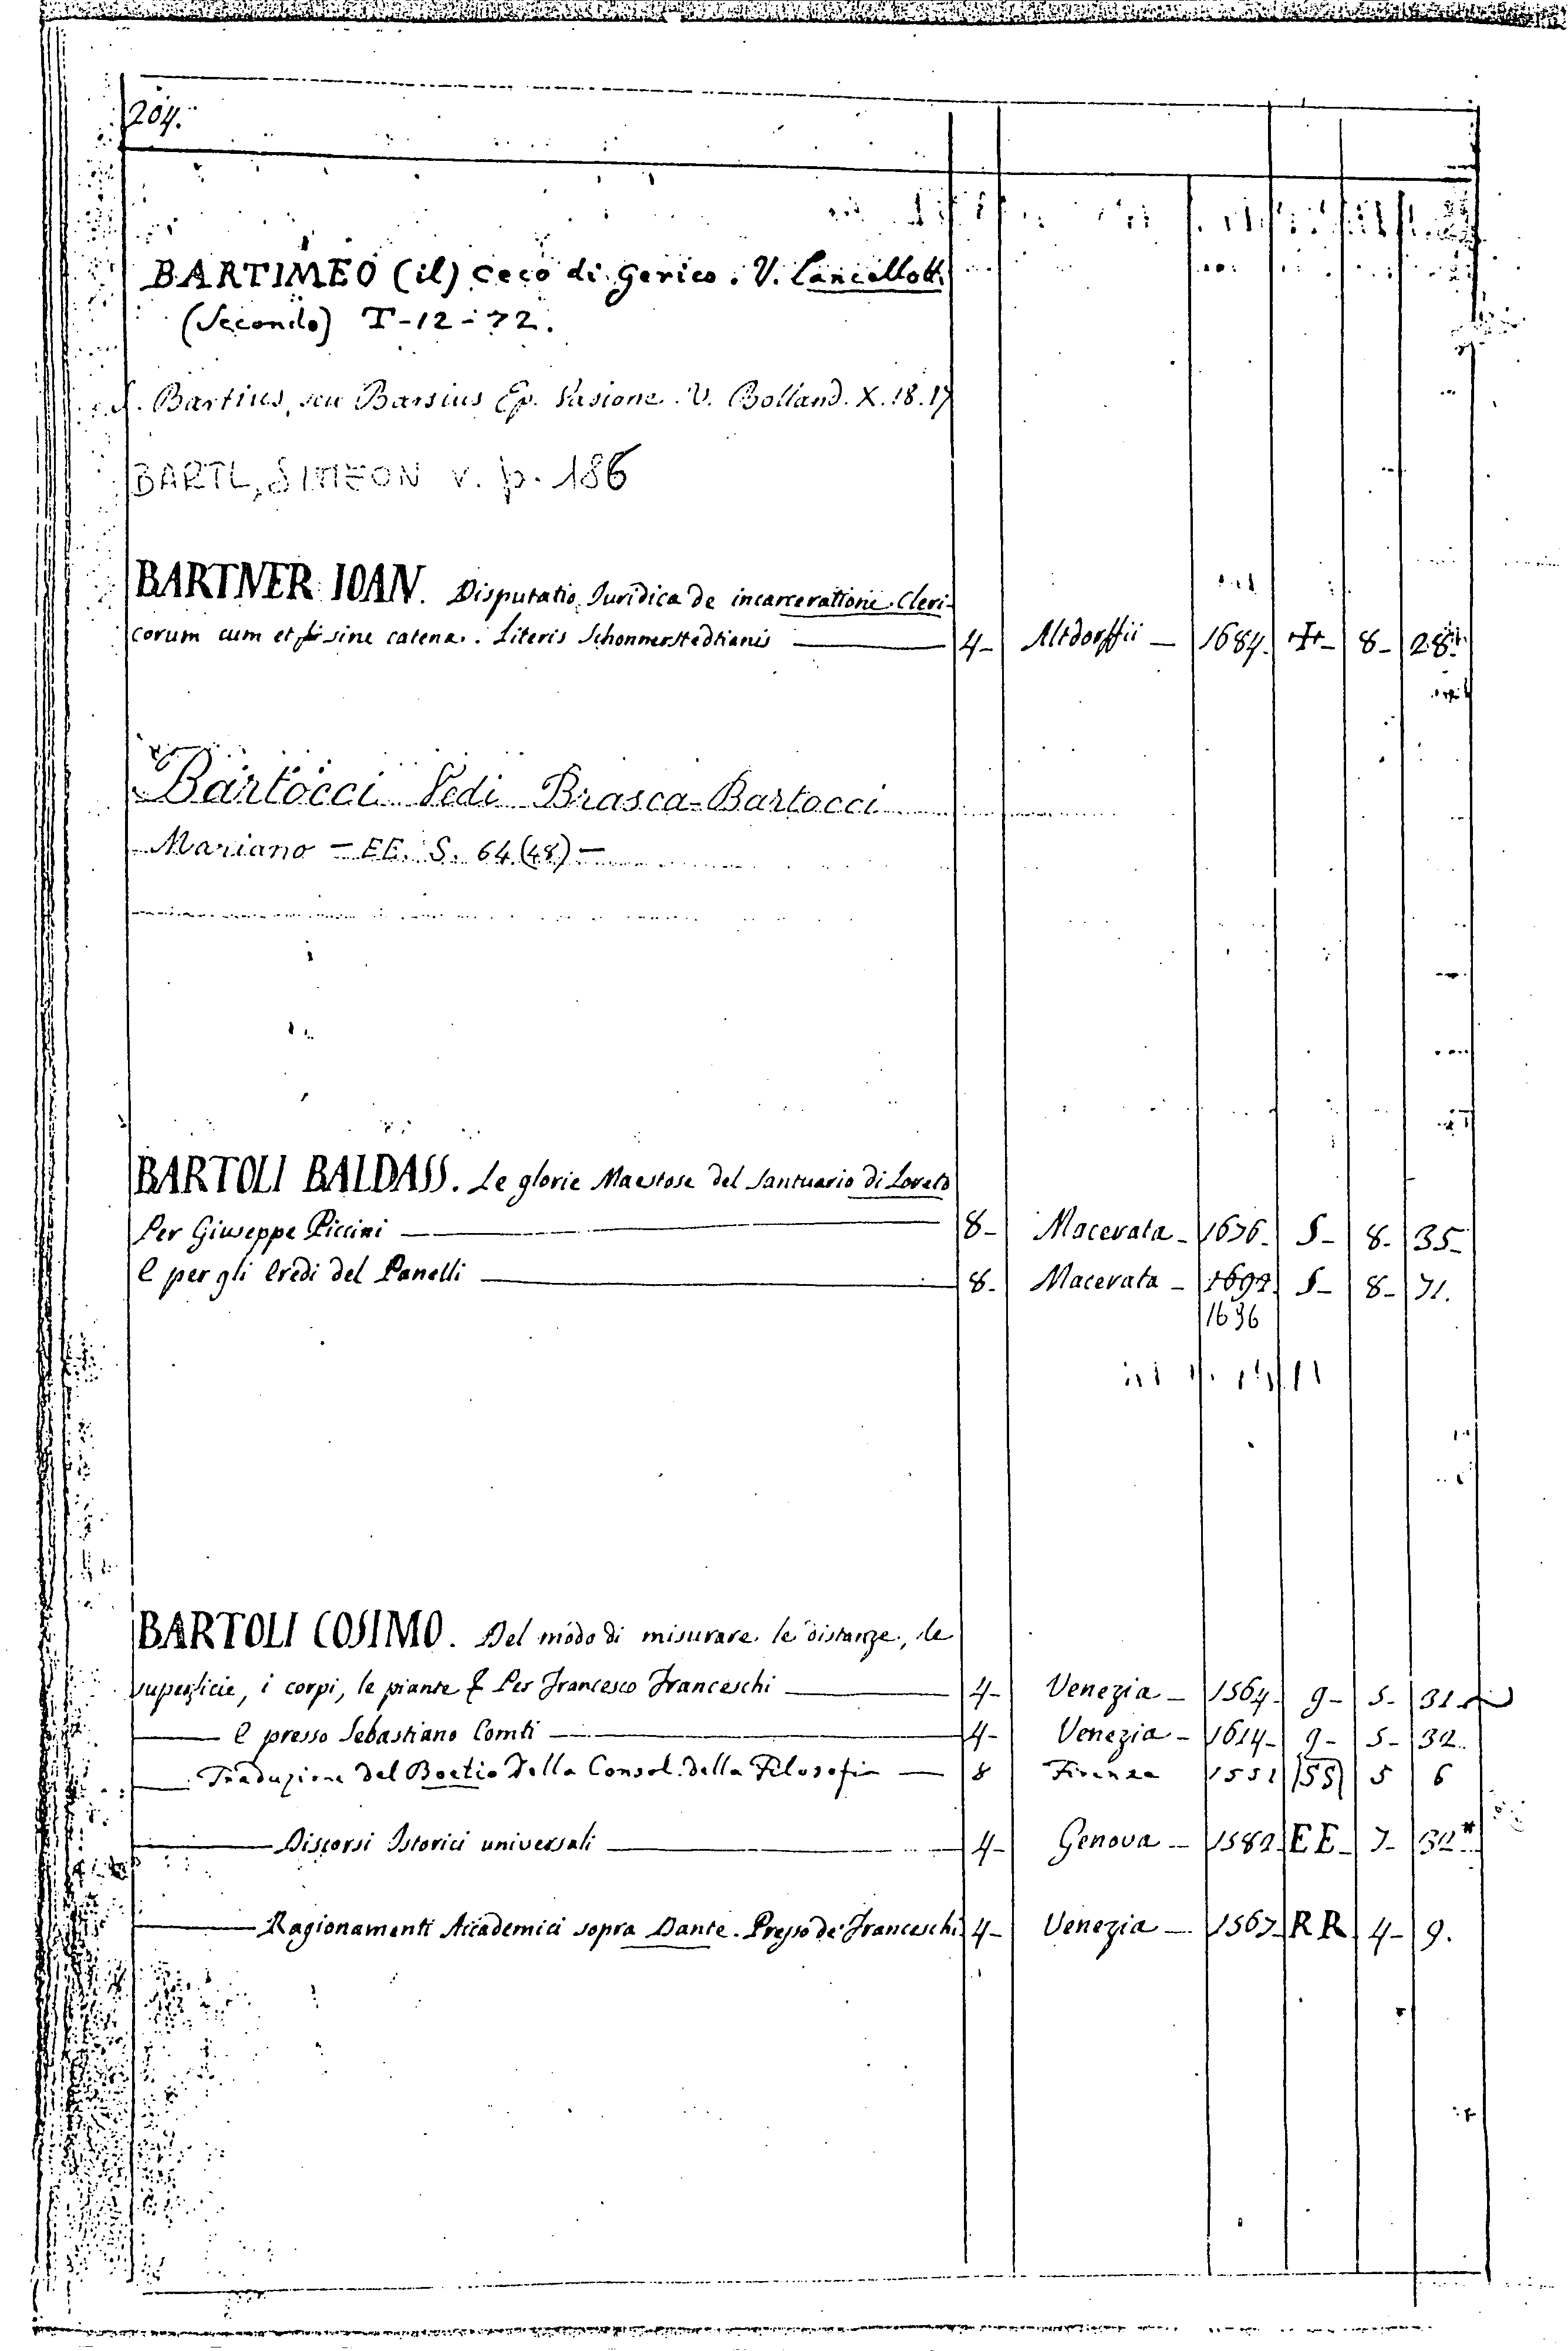 204.
BARTIMEO (il) ceco di Gerico. V. Lancellotti
(Secondo) T-12-72.
S. Bartius, seu Barsius Ep. Vasione. V. Bolland. X. 18. 17
BARTL, SIMEON v. p. 186
BARTNER IOAN. Disputatio Juridica de incarceratione Cleri-
corum cum et sine catena. Literis Schonnerstedtianis 4- Altdorffii 1684. 8- 28.
Bartocci Vedi Brasca-Bartocci
Mariano - EE. S. 64 (48) -
BARTOLI BALDASS. Le glorie Maestose del Santuario di Loreto
Per Giuseppe Piccini 8- Macerata - 1676- S- 8- 35-
E per gli Eredi del Panelli 8- Macerata - 1692. S- 8- 71.
1696
BARTOLI COSIMO. Del modo di misurare le distanze, le
superficie, i corpi, le piante & Per Francesco Franceschi 4- Venezia - 1564- g- 5- 31.
E presso Sebastiano Comti 4- Venezia - 1614- g- 5- 32.
Traduzione del Boetio della Consol. della Filosofia 8 Firenze 1551 SS 5 6
Discorsi Istorici universali 4- Genova - 1582. EE- 7- 32*
Ragionamenti Accademici sopra Dante. Presso de' Franceschi 4- Venezia - 1567- RR 4- 9.